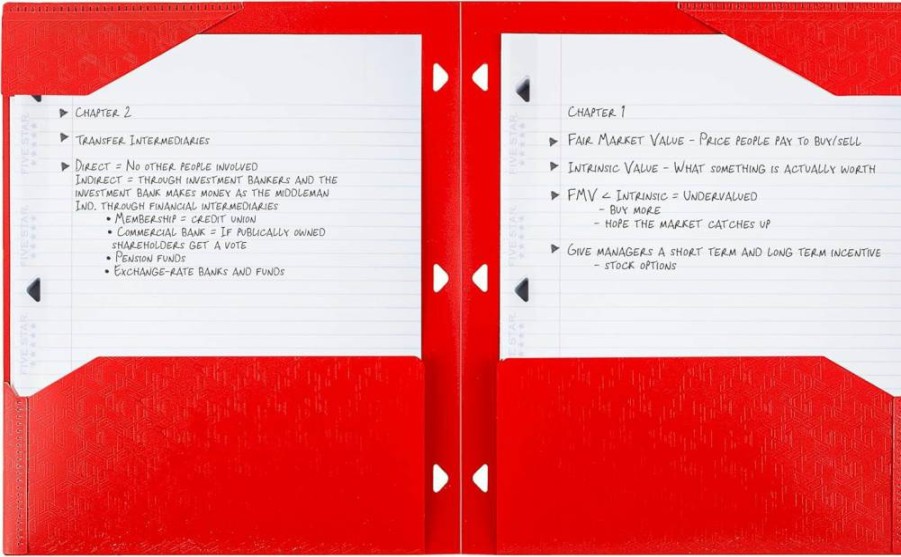 ▶ CHAPTER 2
▶ TRANSFER INTERMEDIARIES
▶ DIRECT = NO OTHER PEOPLE INVOLVED
INDIRECT = THROUGH INVESTMENT BANKERS AND THE
INVESTMENT BANK MAKES MONEY AS THE MIDDLEMAN
IND. THROUGH FINANCIAL INTERMEDIARIES
• MEMBERSHIP = CREDIT UNION
• COMMERCIAL BANK = IF PUBLICALLY OWNED
SHAREHOLDERS GET A VOTE
• PENSION FUNDS
• EXCHANGE-RATE BANKS AND FUNDS
FIVE STAR
FIVE STAR
FIVE STAR
CHAPTER 1
▶ FAIR MARKET VALUE - PRICE PEOPLE PAY TO BUY/SELL
▶ INTRINSIC VALUE - WHAT SOMETHING IS ACTUALLY WORTH
▶ FMV < INTRINSIC = UNDERVALUED
- BUY MORE
- HOPE THE MARKET CATCHES UP
▶ GIVE MANAGERS A SHORT TERM AND LONG TERM INCENTIVE
- STOCK OPTIONS
FIVE STAR
FIVE STAR
FIVE STAR